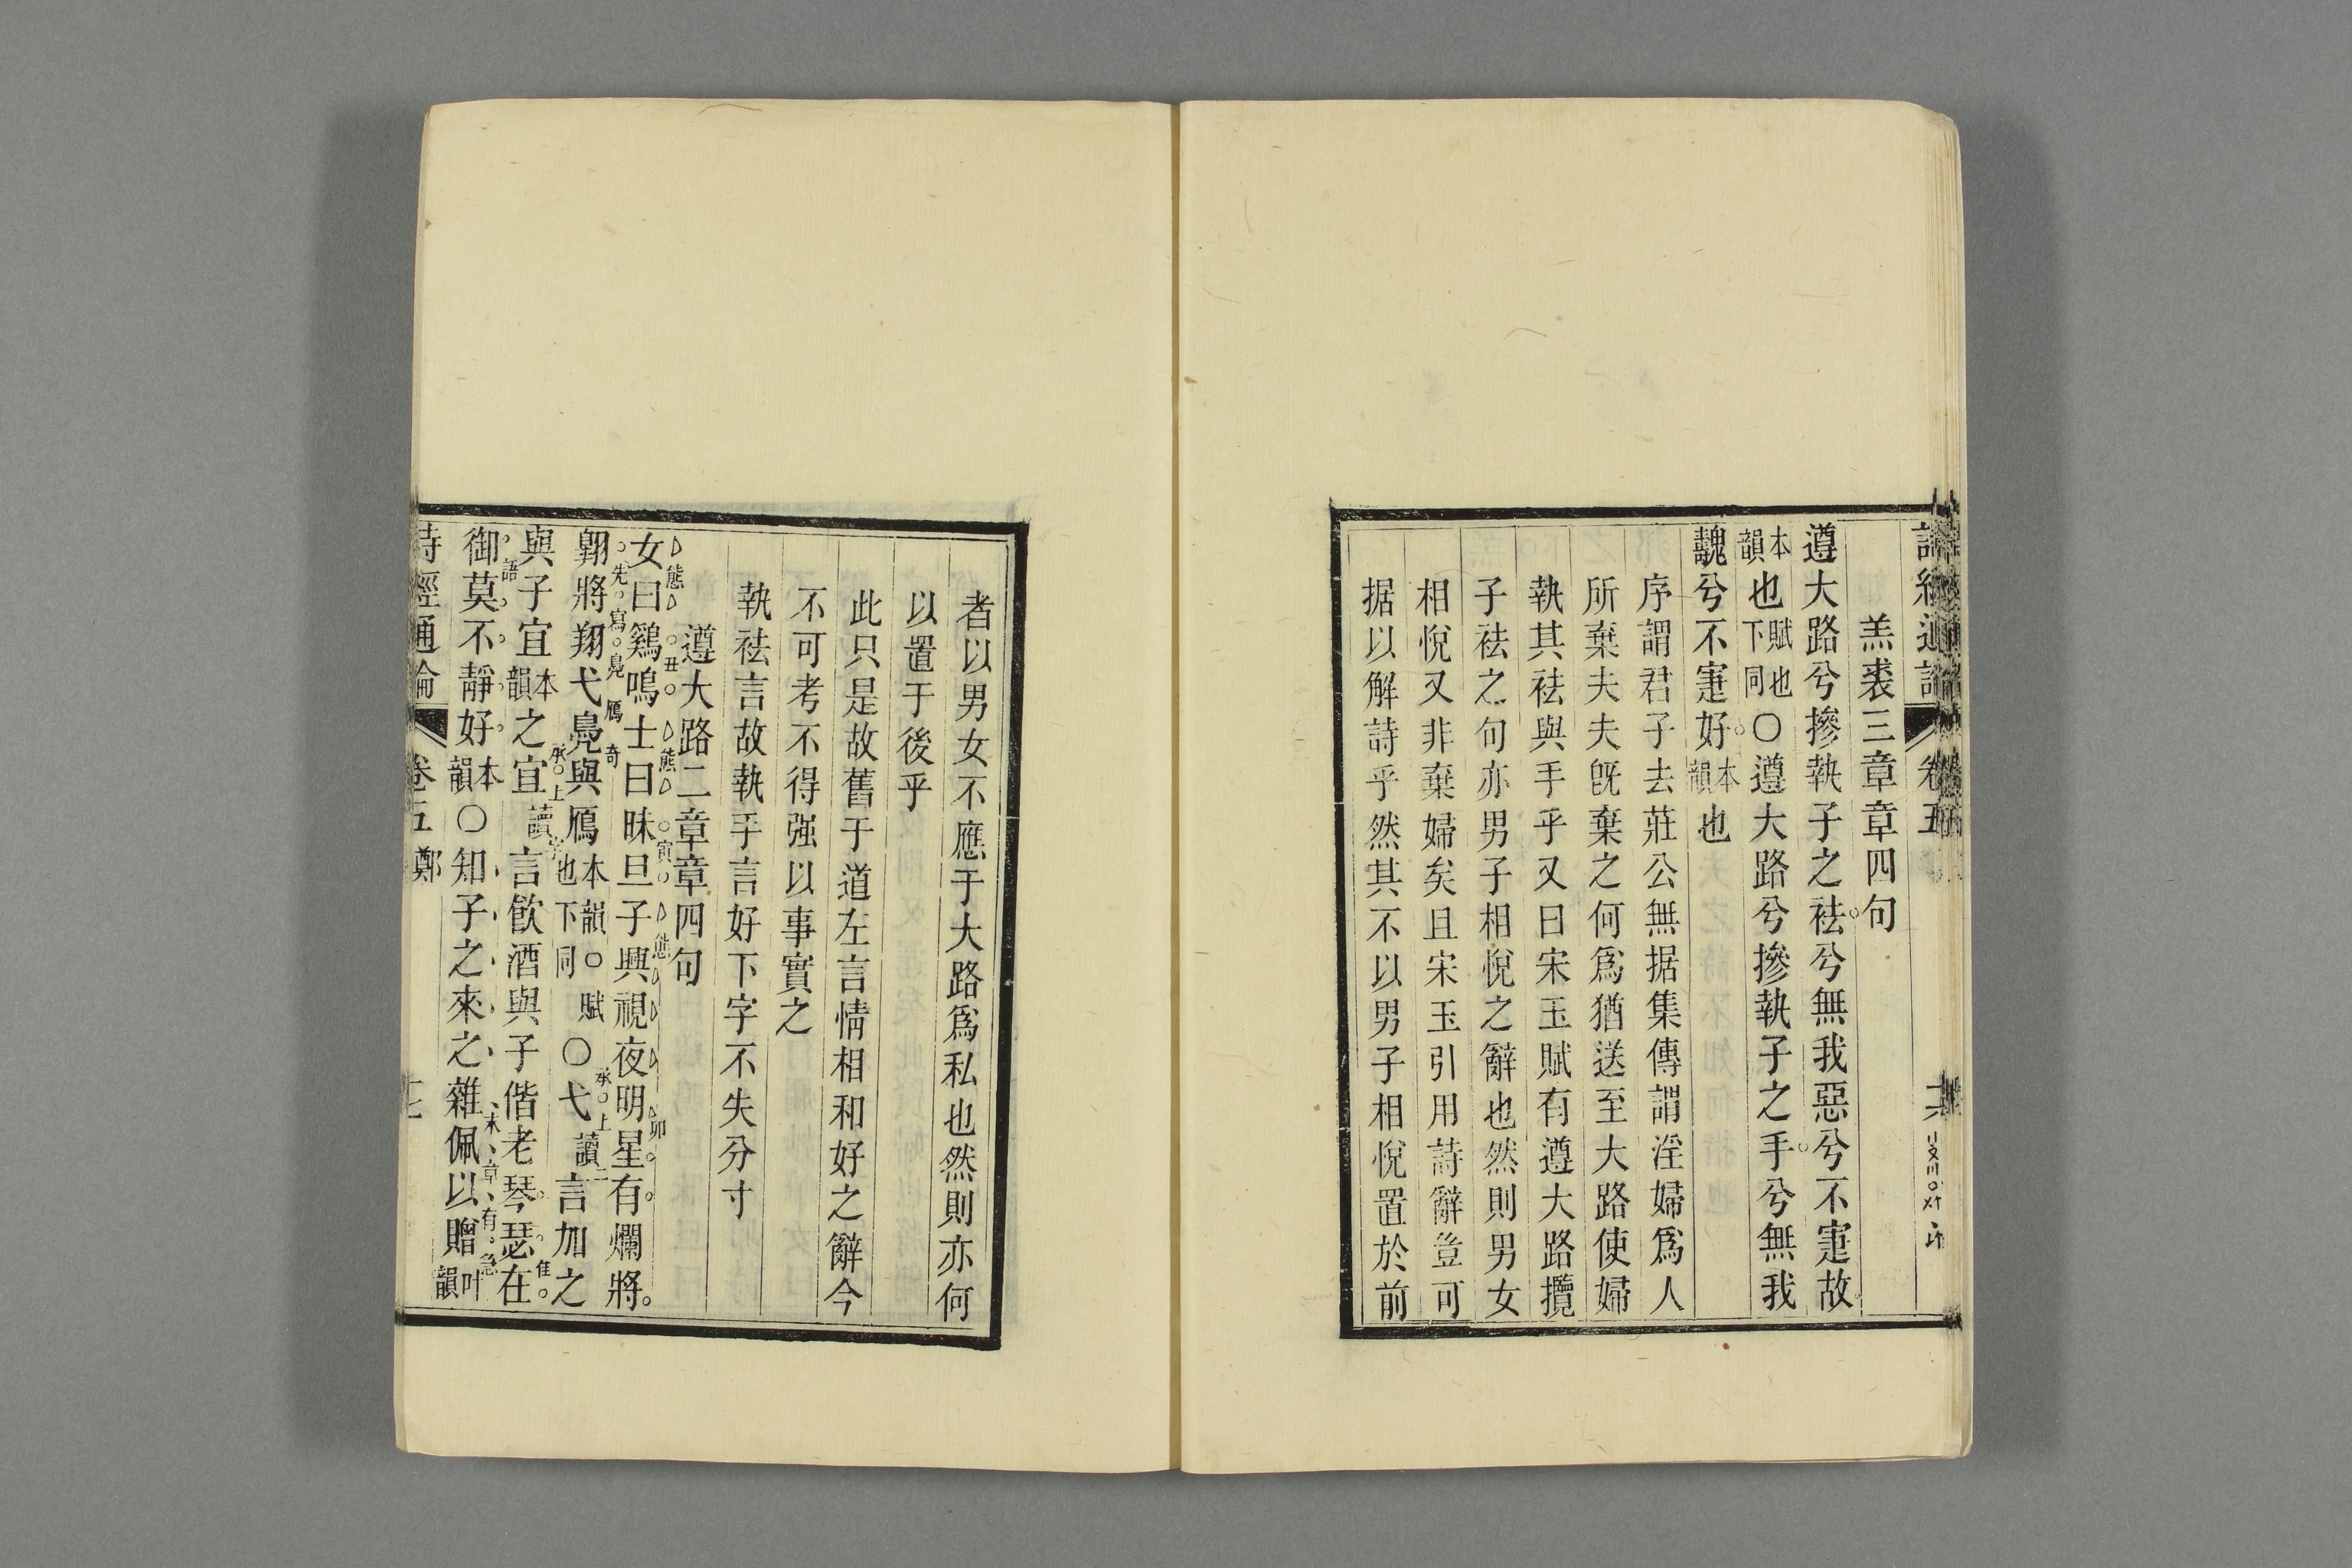 羔裘三章章四句
遵大路兮摻執子之袪兮無我惡兮不寁故
本韻也賦也下同〇遵大路兮摻執子之手兮無我
魗兮不寁好本韻也
序謂君子去莊公無据集傳謂淫婦爲人
所棄夫夫旣棄之何爲猶送至大路使婦
執其袪與手乎又曰宋玉賦有遵大路攬
子袪之句亦男子相悅之辭也然則男女
相悅又非棄婦矣且宋玉引用詩辭豈可
据以解詩乎然其不以男子相悅置於前
者以男女不應于大路爲私也然則亦何
以置于後乎
此只是故舊于道左言情相和好之辭今
不可考不得强以事實之
執袪言故執手言好下字不失分寸
遵大路二章章四句
女曰鷄鳴士曰昧旦子興視夜明星有爛將
翺將翔弋鳧與鴈本韻。賦也下同〇弋承上讀言加之
與子宜本韻之宜承上讀言飮酒與子偕老琴瑟在
御莫不靜好本韻〇知子之來之雜佩以贈叶韻
詩經通論 卷五 鄭